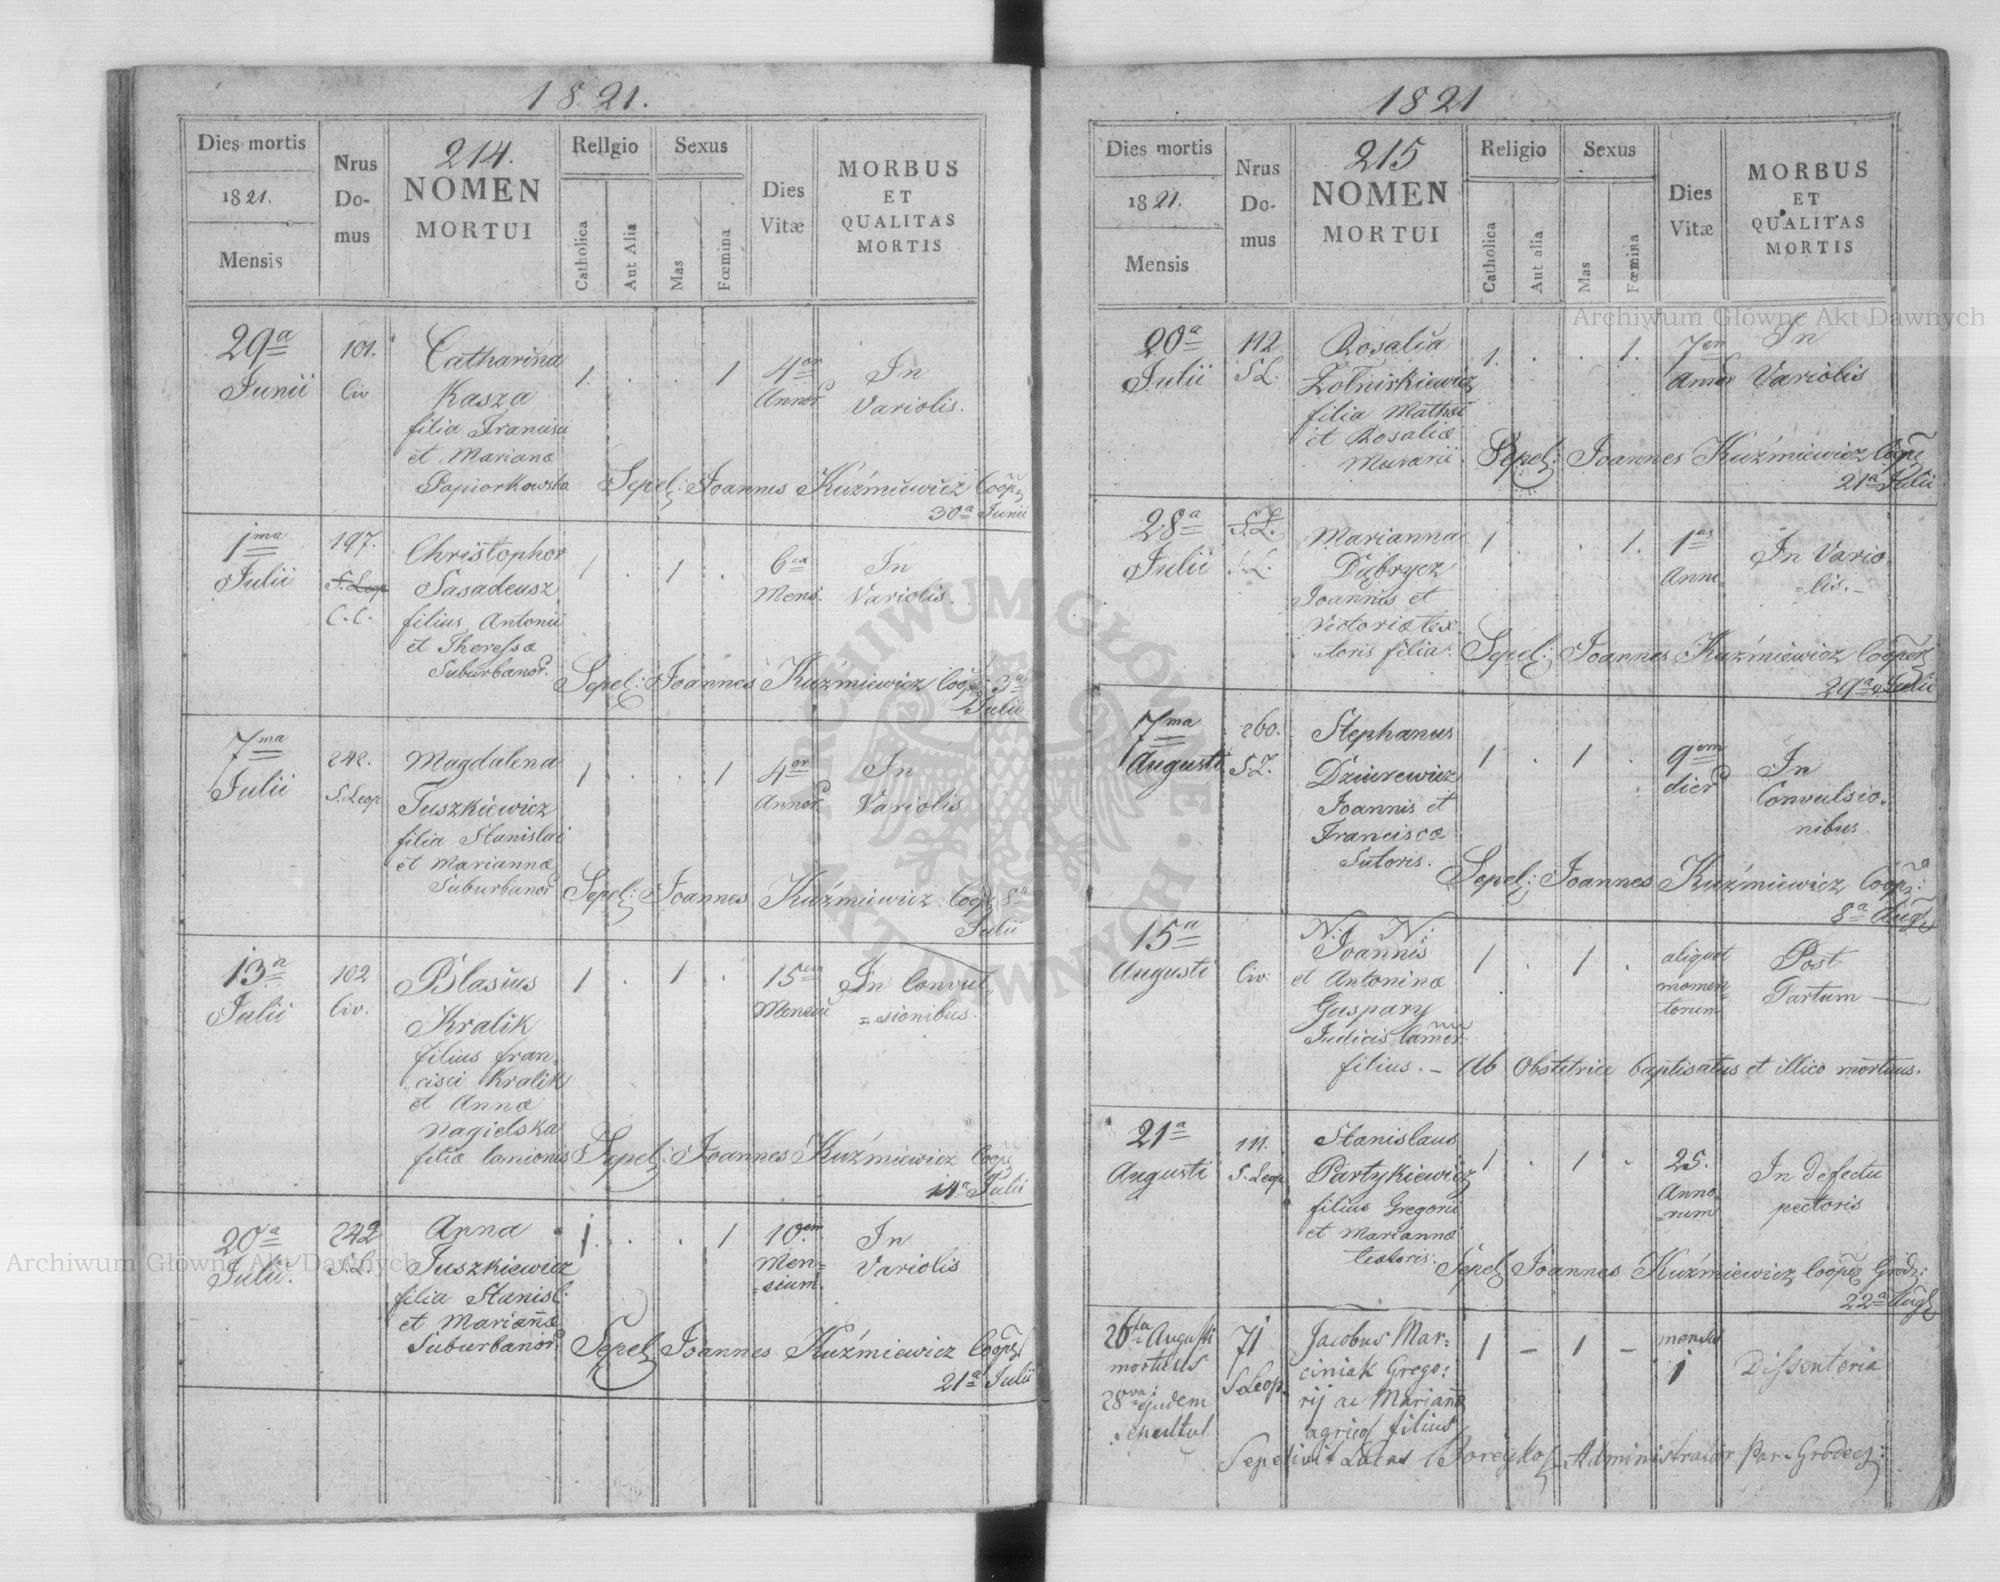 1821.
Dies mortis
1821.
Mensis
Nrus
Do-
mus
214.
NOMEN
MORTUI
Religio
Catholica
Aut Alia
Sexus
Mas
Fœmina
Dies
Vitæ
MORBUS
ET
QUALITAS
MORTIS
29a
Junii
101.
Civ
Catharina
Kasza
filia Francisci
et Mariana
Papiorkowska
1 . . 1
4or
Annor
In
Variolis.
Sepel: Joannes Kuźmiewicz Coop
30a Junii
1ma
Julii
197.
S. Leop
C. C.
Christophor
Sasadeusz
filius Antonii
et Theressæ
Suburbanor.
1 . 1 .
6ex
Mens.
In
Variolis.
Sepel: Joannes Kuźmiewicz Coop: 3a
Julii
7ma
Julii
242.
S. Leop
Magdalena
Tuszkiewicz
filia Stanislai
et Mariannæ
Suburbanor
1 . . 1
4or
Annor
In
Variolis
Sepel: Joannes Kuźmiewicz Coop 8a
Julii
13a
Julii
102
Civ.
Blasius
Kralik
filius fran-
cisci Kralik
et Anna
Nagielska
filiæ lanionis
1 . 1 .
15em
Mensiu
In Convul
=sionibus.
Sepel: Joannes Kuźmiewicz Coop
14a Julii
20a
Julii.
242
S. L.
Anna
Tuszkiewicz
filia Stanisl:
et Mariañæ
Suburbanor
1 . . 1
10em
Men=
=sium.
In
Variolis
Sepel Joannes Kuźmiewicz Coop
21a Julii
1821
Dies mortis
1821.
Mensis
Nrus
Do-
mus
215
NOMEN
MORTUI
Religio
Catholica
Aut alia
Sexus
Mas
Fœmina
Dies
Vitæ
MORBUS
ET
QUALITAS
MORTIS
20a
Julii
112
S L.
Rosalia
Zołnirkiewicz
filia Mathei
et Rosaliæ
Murarii.
1. . . 1.
7em
Annor
In
Variolis
Sepel: Joannes Kuźmiewicz Coop
21a Julii
28a
Julii
S. L.
S. L.
Marianna
Dąbrycz
Joannis et
Victoriæ tex
toris filia.
1 . . 1.
1us
Anni
In Vario
=lis.
Sepel: Joannes Kuźmiewicz Cooper
29a Julii
7ma
Augusti
260.
S. L.
Stephanus
Dziurewicz
Joannis et
Franciscæ
Sutoris.
1 . 1 .
9em
dier
In
Convulsio-
nibus.
Sepel: Joannes Kuźmiewicz Coop:
8a Aug
15a
Augusti
Civ:
N: N:
Joannis
et Antoninæ
Gaspary
Judicis Camer
filius. –
1 . 1 .
aliquot
momen-
torum
Post
Partum
Ab Obstetrice baptisatus et illico mortuus.
21a
Augusti
111.
S. Leop
Stanislaus
Partykiewicz
filius Gregorii
et Mariannæ
textoris.
1 . 1 -
25.
Anno
=rum
In defectu
pectoris
Sepel Joannes Kuźmiewicz Coop Grodz:
22a Aug
26ta Augusti
mortuus
28va ejudem
sepultul
71
S Leop.
Jacobus Mar=
ciniak Grego:
rij ac Mariañæ
agricol filius
1 – 1 –
mensis
1
Dissenteria
Sepelivit Lucas Administrator Par. Grodec:
Archiwum Główne Akt Dawnych
Archiwum Główne Akt Dawnych
ARCHIWUM GŁÓWNE AKT DAWNYCH